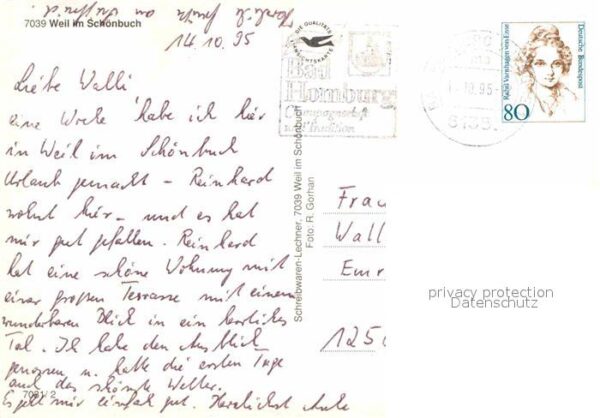 Herzliche Grüße an
7039 Weil im Schönbuch
14.10.95
Liebe Walli
eine Woche habe ich hier
in Weil im Schönbuch
Urlaub gemacht - Reinhard
wohnt hier - und es hat
mir gut gefallen. Reinhard
hat eine schöne Wohnung mit
einer großen Terrasse mit einem
wunderbaren Blick in ein herrliches
Tal. Ich habe den Ausblick
genossen u. hatte die ersten Tage
auch das schönste Wetter.
Es geht mir einfach gut. Herzlichst
7031/2
Schreibwaren-Lechner, 7039 Weil im Schönbuch
Foto: R. Gorhan
DIE QUALITÄTS
Bad
Homburg
Champagnerluft
und Tradition
10.95
Rahel Varnhagen von Ense
Deutsche Bundespost
80
Frau
Wall
Emr
125
privacy protection
Datenschutz